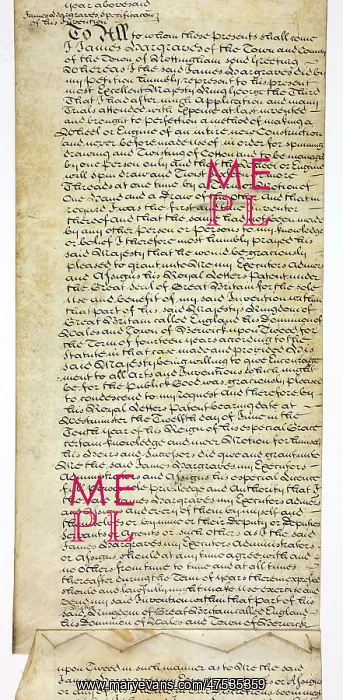 year abovesaid
James Hargraves Specification
of his Invention
To All to whom these Presents shall come
I James Hargraves of the Town and County
of the Town of Nottingham send Greeting
Whereas I the said James Hargraves did by
my Petition humbly represent to his present
most Excellent Majesty King George the Third
That I had after much Application and many
Trials attended with Expence at last invented
and brought to Perfection a method of making a
Wheel or Engine of an intire new Construction
and never before made use of in order for spinning
drawing and twisting of Cotton and to be managed
by one Person only and that the Wheel or Engine
will spin draw and Twist or more
Threads at one time by a of
One Hand and a Draw of And that in
regard I was the first and Inventor
thereof and that the same had not been made
by any other Person or Persons to my knowledge
or belief I therefore most humbly prayed his
said Majesty that he would be graciously
pleased to grant unto Me my Executors Admrs
and Assigns his Royal Letters Patent under
the Great Seal of Great Britain for the sole
Use and benefit of my said Invention within
that part of his said Majestys Kingdom of
Great Britain called England his Dominion of
Wales and Town of Berwick upon Tweed for
the Term of fourteen years according to the
Statute in that case made and provided
said Majesty being willing to give Encourage
ment to all Arts and Inventions which might
be for the Publick Good was graciously pleased
to condescend to my request and therefore by
his Royal Letters Patent bearing date at
Westminster the Twelfth day of June in the
Tenth year of his Reign of his especial Grace
certain knowledge and meer Motion for himself
his Heirs and Successors did give and grant unto
Me the said James Hargraves my Executors
and Assigns his especial Licence
Priviledge and Authority that I
James Hargraves my Executors Admrs
and every of them by myself and
themselves or by mine or their Deputy or Deputies
Servants or Agents or such others as I the said
James Hargraves my Executors Administrators
or Assigns should at any time agree with and
no others from time to time and at all times
thereafter during the Term of years therein expressed
should and lawfully might make use exercise and
vend my said Invention within that Part of his
said Kingdom of Great Britain called England
his Dominion of Wales and Town of Berwick
upon Tweed in such manner as to Me the said
James
or any
ME
PL
ME
PL
www.maryevans.com/47535359